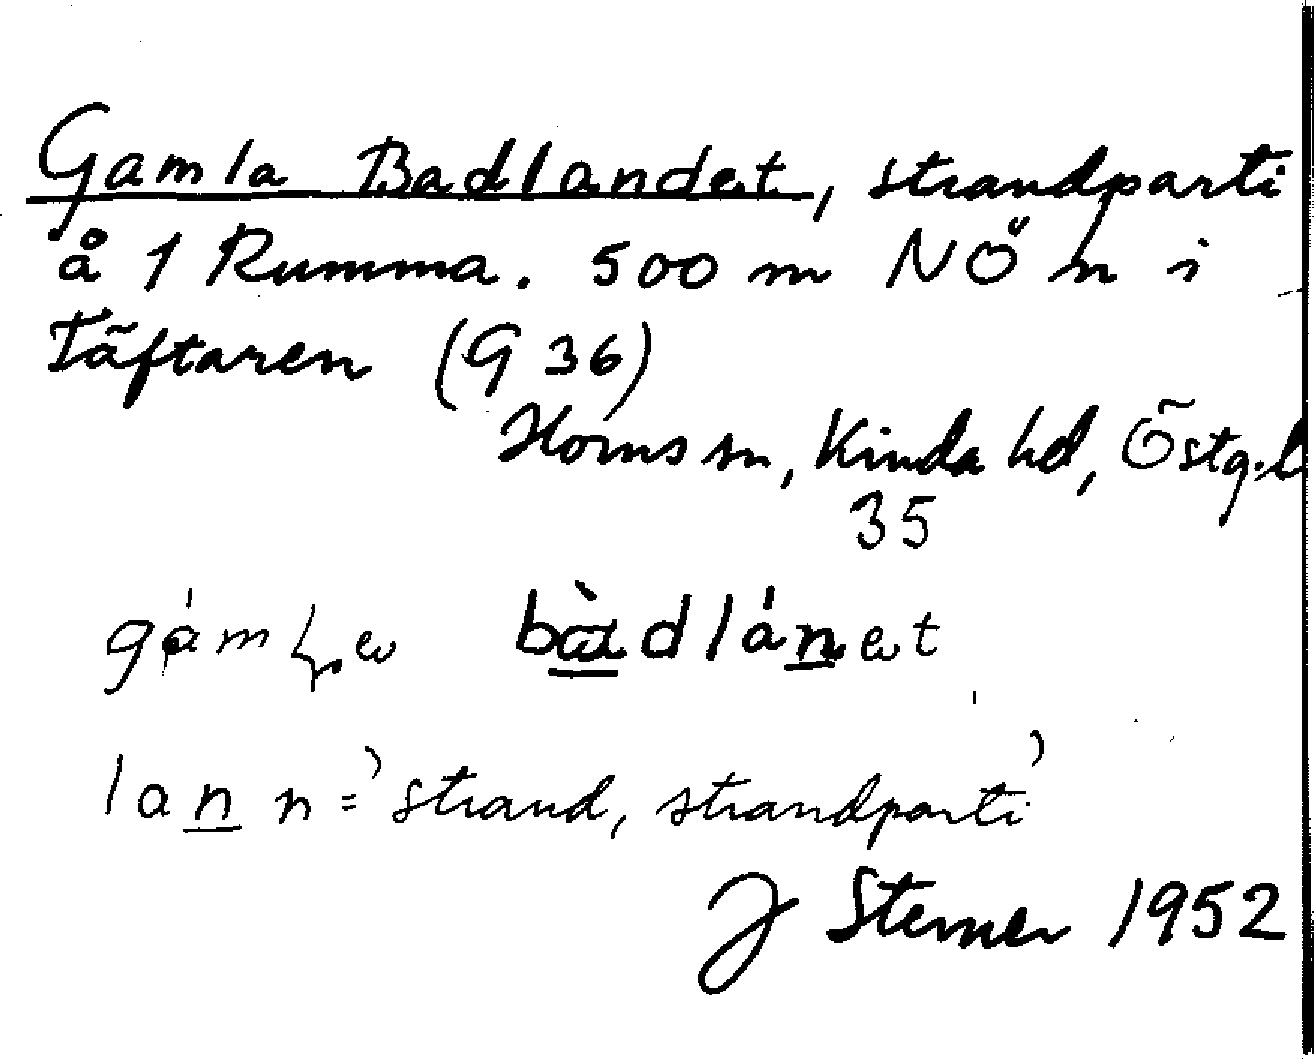 Gamla Badlandet, strandparti
å 1 Rumma. 500 m NÖ n i
Täftaren (G 36)
Horns sn, Kinda hd, Östg.l
35
bàdlánet
lan n = 'strand, strandparti'
J Sterner 1952